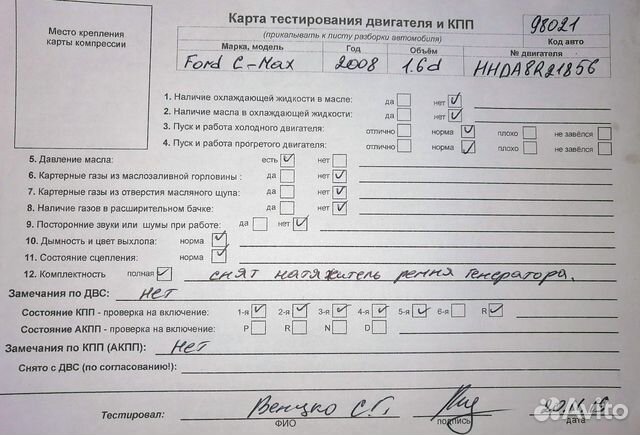 Место крепления карты компрессии
Карта тестирования двигателя и КПП
(прикалывать к листу разборки автомобиля)
98021
Код авто
Марка, модель Год Объём № двигателя
Ford C-Max 2008 1.6d HHDA8R21856
1. Наличие охлаждающей жидкости в масле: да нет
2. Наличие масла в охлаждающей жидкости: да нет
3. Пуск и работа холодного двигателя: отлично норма плохо не завёлся
4. Пуск и работа прогретого двигателя: отлично норма плохо не завёлся
5. Давление масла: есть нет
6. Картерные газы из маслозаливной горловины : да нет
7. Картерные газы из отверстия масляного щупа: да нет
8. Наличие газов в расширительном бачке: да нет
9. Посторонние звуки или шумы при работе: да нет
10. Дымность и цвет выхлопа: норма
11. Состояние сцепления: норма
12. Комплектность полная снят натяжитель ремня генератора.
Замечания по ДВС: нет
Состояние КПП - проверка на включение: 1-я 2-я 3-я 4-я 5-я 6-я R
Состояние АКПП - проверка на включение: P R N D
Замечания по КПП (АКПП): нет
Снято с ДВС (по согласованию!):
Тестировал: С.Г.
ФИО подпись дата
Avito